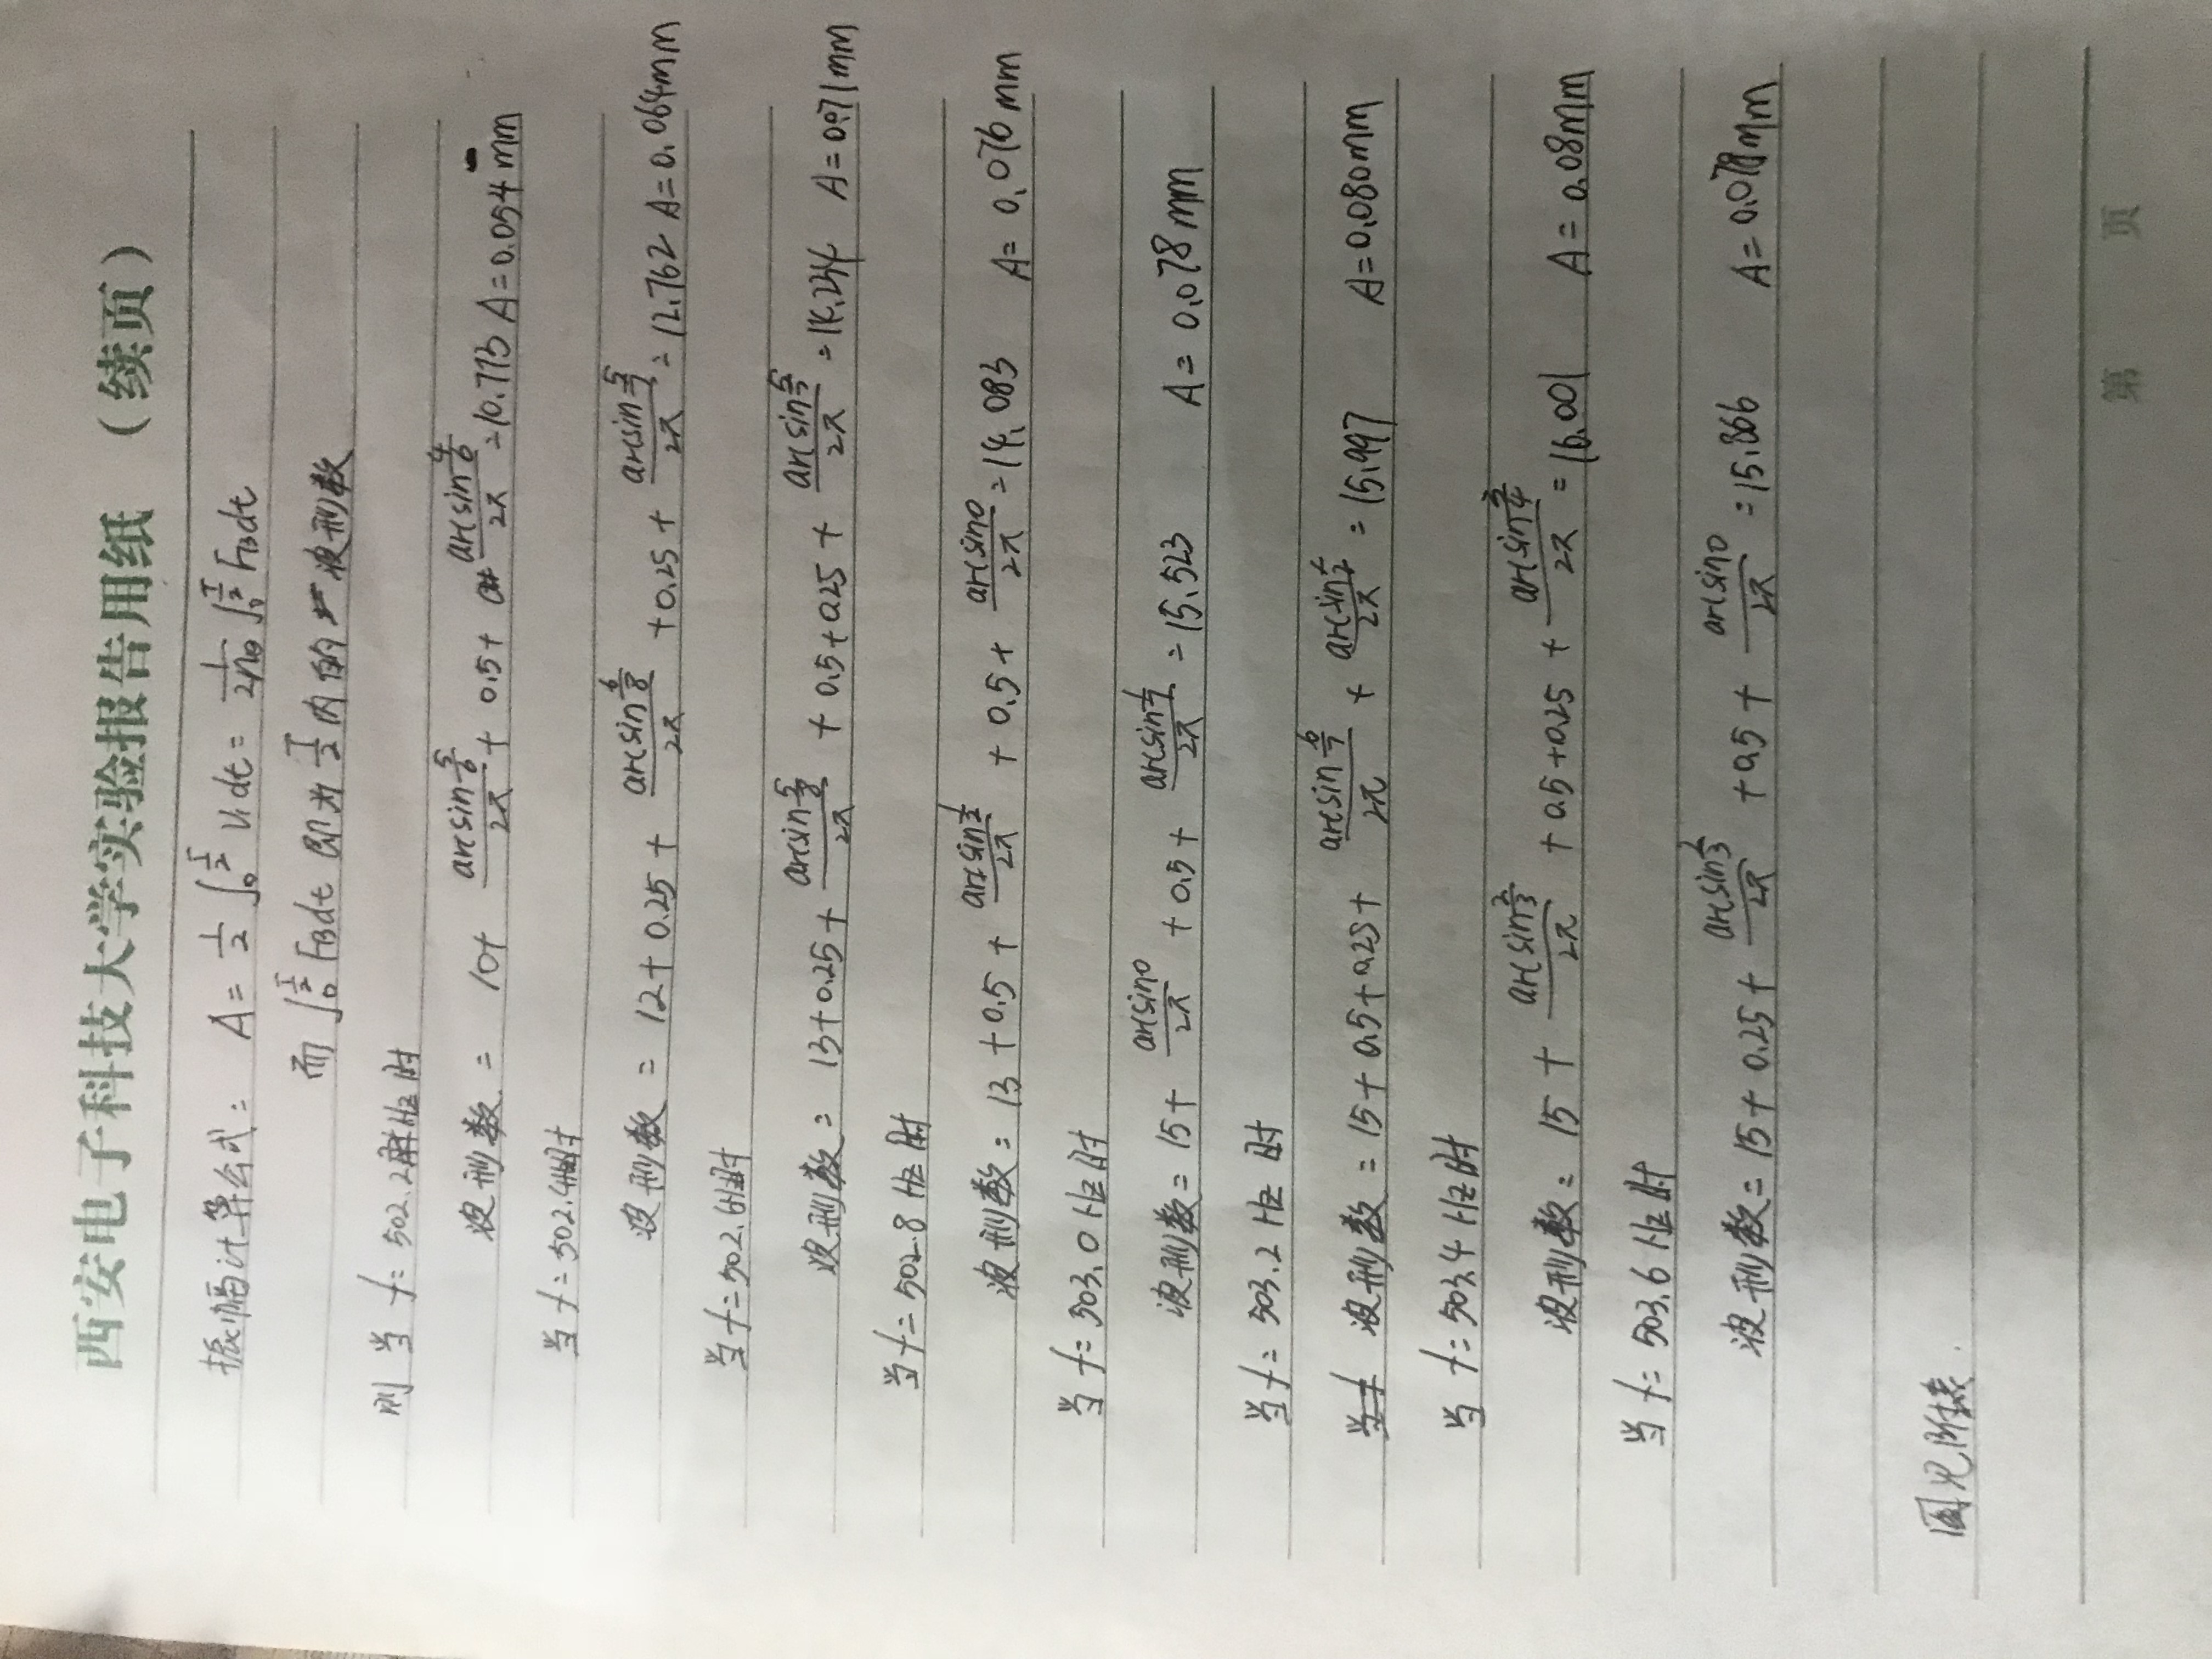 西安电子科技大学实验报告用纸 （续页）
振幅计算公式： A = 1/2 ∫₀^(T/2) V₁dt = 1/(2nθ) ∫₀^(T/2) F_B dt
而 ∫₀^(T/2) F_B dt 即为 T/2 内的 波形数
则 当 f = 502.2 Hz 时
波形数 = 10+ arcsin(5/6)/2π + 0.5 + arcsin(4/6)/2π = 10.773 A = 0.054 mm
当 f = 502.4Hz时
波形数 = 12 + 0.25 + arcsin(6/8)/2π + 0.25 + arcsin(5/7)/2π = 12.762 A = 0.064mm
当 f = 502.6Hz时
波形数 = 13 + 0.25 + arcsin(5/8)/2π + 0.5 + 0.25 + arcsin(5/7)/2π = 14.234 A = 0.071mm
当 f = 502.8 Hz 时
波形数 = 13 + 0.5 + arcsin(1/2)/2π + 0.5 + arcsin0/2π = 14.083 A = 0.076 mm
当 f = 503.0 Hz 时
波形数 = 15 + arcsin0/2π + 0.5 + arcsin(1/7)/2π = 15.523 A = 0.078 mm
当 f = 503.2 Hz 时
波形数 = 15 + 0.5 + 0.25 + arcsin(6/7)/2π + arcsin /2π = 15.997 A = 0.080mm
当 f = 503.4 Hz时
波形数 = 15 + arcsin(2/3)/2π + 0.5 + 0.25 + arcsin(3/4)/2π = 16.001 A = 0.08mm
当 f = 503.6 Hz 时
波形数 = 15 + 0.25 + arcsin(2/3)/2π + 0.5 + arcsin0/2π = 15.866 A = 0.078mm
图见附表.
第 页